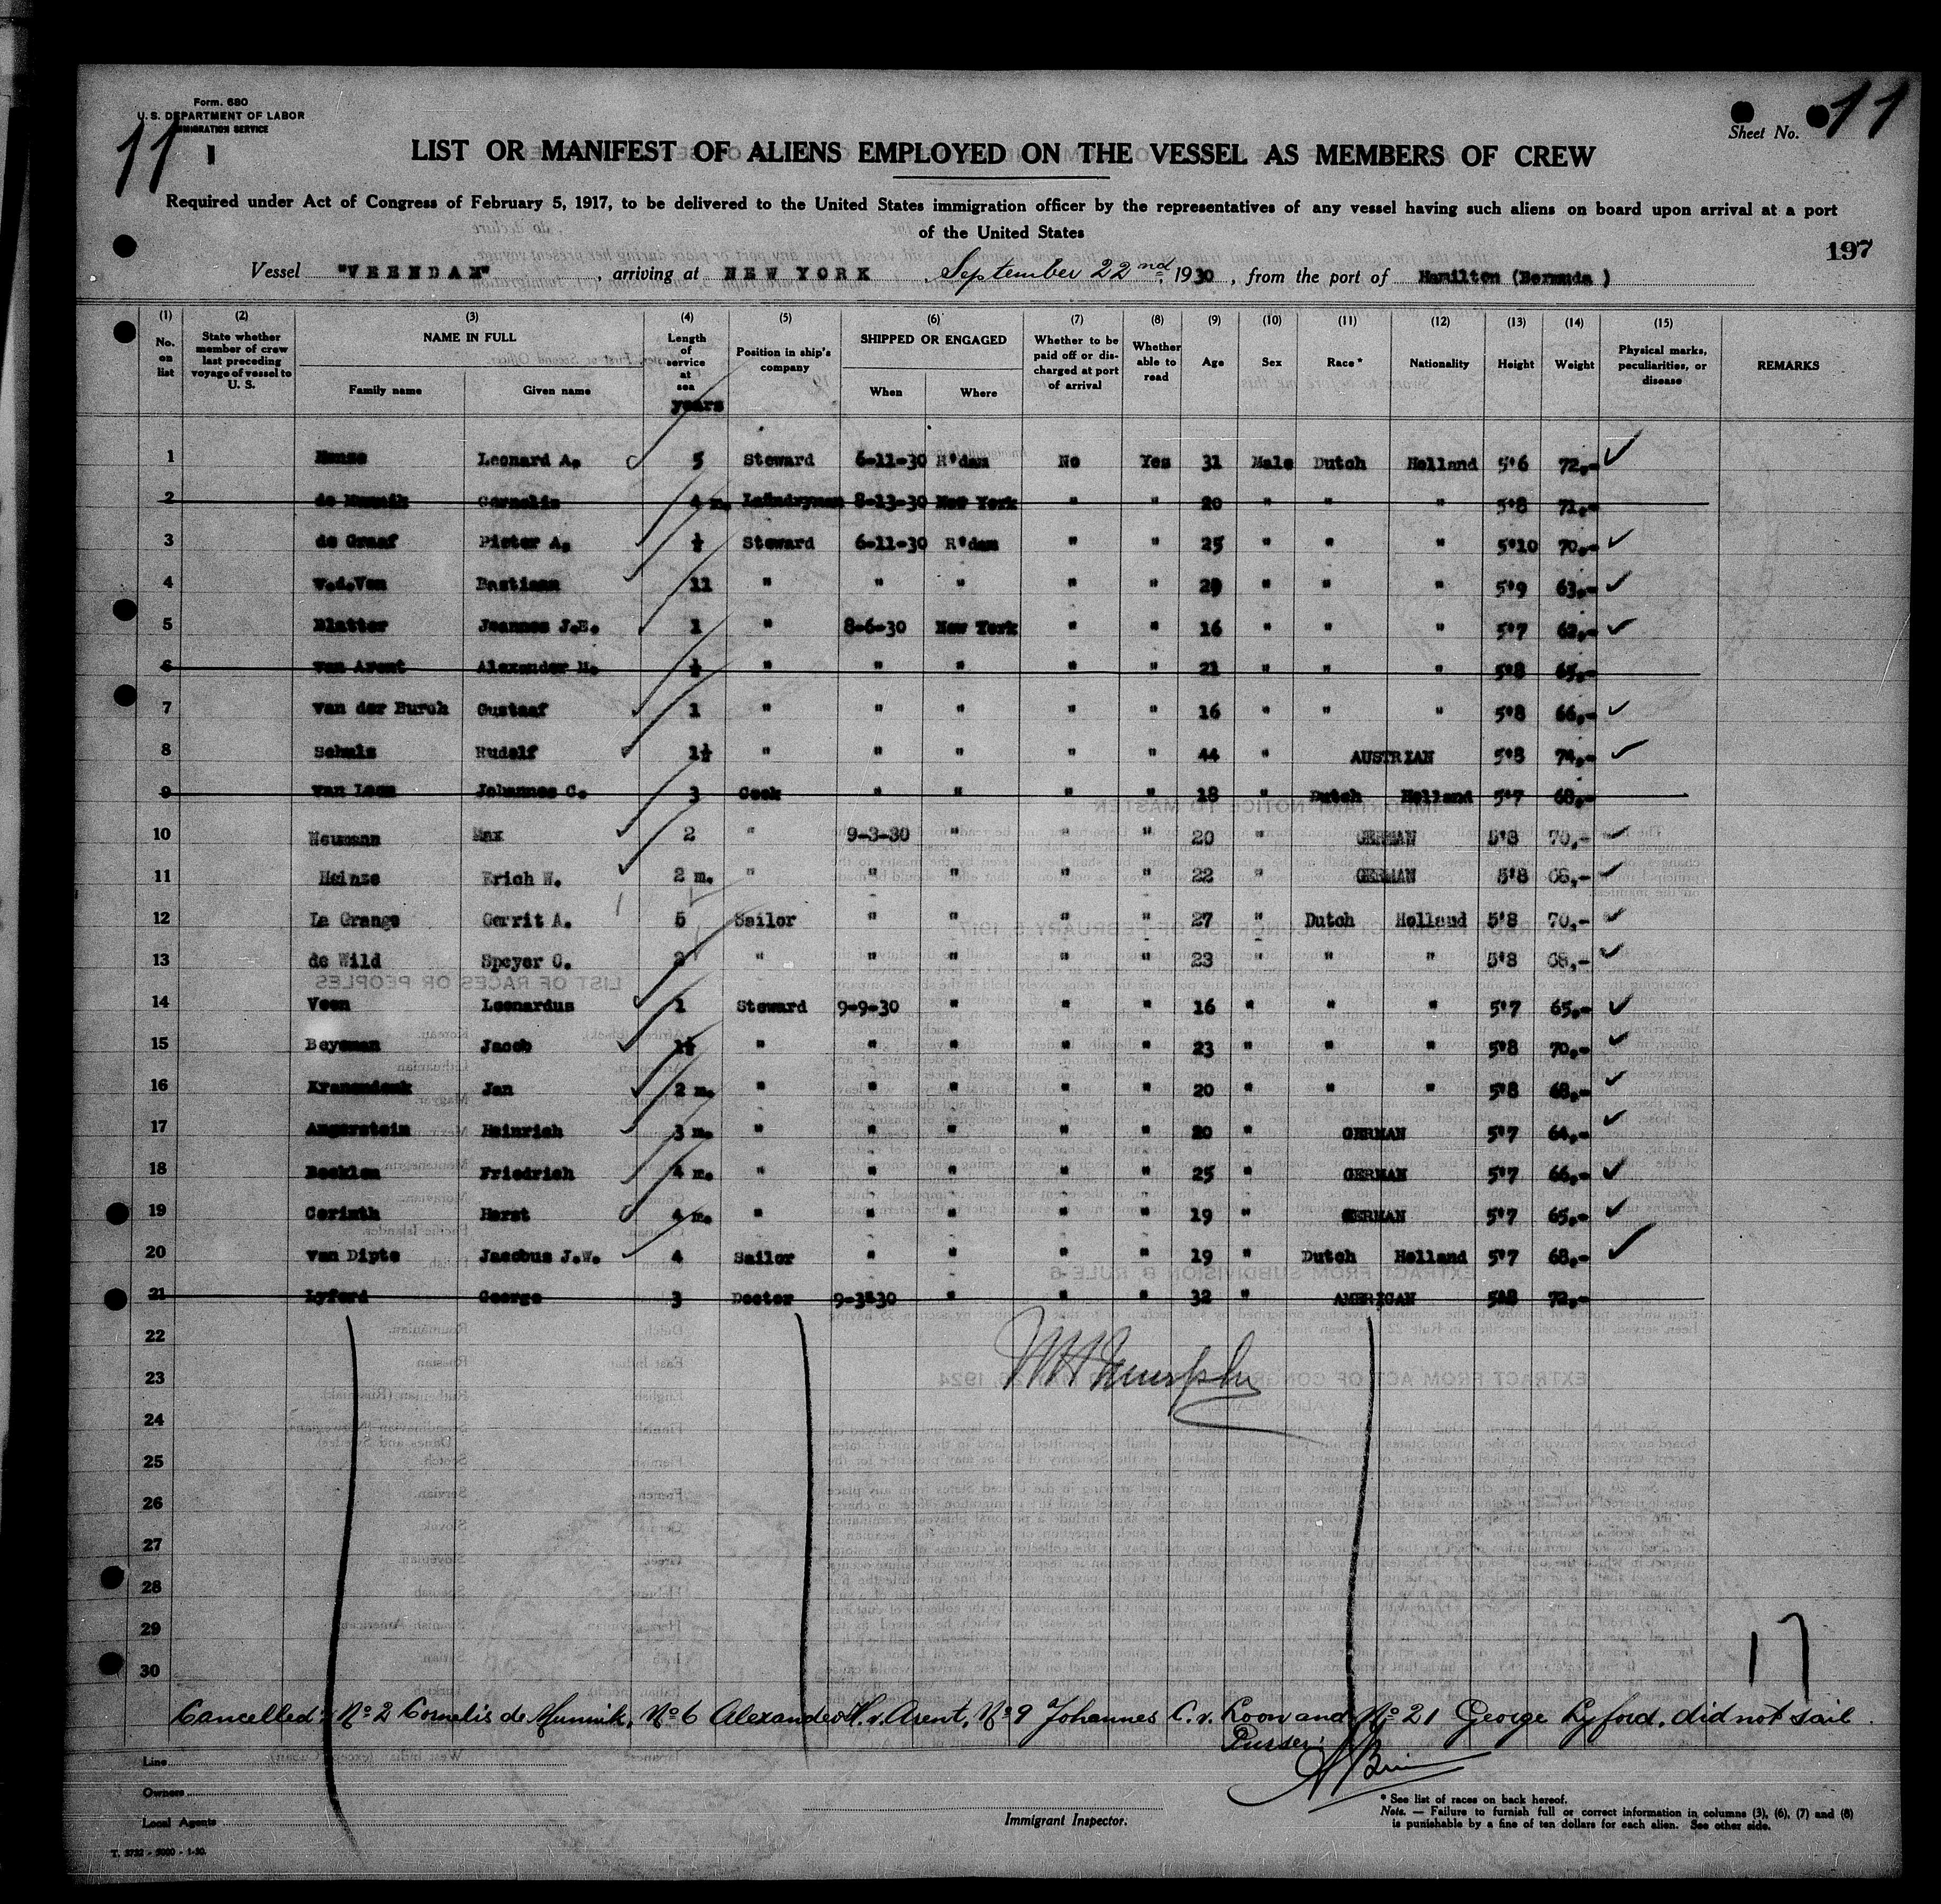 Form. 680
U. S. DEPARTMENT OF LABOR
IMMIGRATION SERVICE
11
Sheet No. 11
LIST OR MANIFEST OF ALIENS EMPLOYED ON THE VESSEL AS MEMBERS OF CREW
Required under Act of Congress of February 5, 1917, to be delivered to the United States immigration officer by the representatives of any vessel having such aliens on board upon arrival at a port
of the United States
197
Vessel "VEENDAM", arriving at NEW YORK September 22nd, 1930, from the port of Hamilton (Bermuda)
(1) (2) (3) (4) (5) (6) (7) (8) (9) (10) (11) (12) (13) (14) (15)
No. on list State whether member of crew last preceding voyage of vessel to U. S. NAME IN FULL Family name Given name Length of service at sea years Position in ship's company SHIPPED OR ENGAGED When Where Whether to be paid off or discharged at port of arrival Whether able to read Age Sex Race* Nationality Height Weight Physical marks, peculiarities, or disease REMARKS
1 Leonard A. 5 Steward 6-11-30 R'dam No Yes 31 Male Dutch Holland 5'6 72,-
2 de Munnik Cornelis 4 m. Laundryman 8-13-30 New York " " 20 " " " 5'8 71,-
3 de Graaf Pieter A. ½ Steward 6-11-30 R'dam " " 25 " " " 5'10 70,-
4 v.d.Ven Bastiaan 11 " " " " " 29 " " " 5'9 63,-
5 Blatter Joannes J.B. 1 " 8-6-30 New York " " 16 " " " 5'7 62,-
6 van Arent Alexander H. ½ " " " " " 21 " " " 5'8 65,-
7 van der Burch Gustaaf 1 " " " " " 16 " " " 5'8 66,-
8 Schulz Rudolf 1½ " " " " " 44 " AUSTRIAN 5'8 74,-
9 van Loon Johannes C. 3 Cook " " " " 18 " Dutch Holland 5'7 68,-
10 Neumann Max 2 " 9-3-30 " " " 20 " GERMAN 5'8 70,-
11 Heinze Erich W. 2 m. " " " " " 22 " GERMAN 5'8 68,-
12 La Grange Gerrit A. 5 Sailor " " " " 27 " Dutch Holland 5'8 70,-
13 de Wild Speyer C. 2 " " " " " 23 " " " 5'8 68,-
14 Veen Leonardus 1 Steward 9-9-30 " " " 16 " " " 5'7 65,-
15 Beyeman Jacob 1½ " " " " " 23 " " " 5'8 70,-
16 Kranendonk Jan 2 m. " " " " " 20 " " " 5'8 68,-
17 Angerstein Heinrich 3 m. " " " " " 20 " GERMAN 5'7 64,-
18 Becklen Friedrich 4 m. " " " " " 25 " GERMAN 5'7 66,-
19 Corinth Horst 4 m. " " " " " 19 " GERMAN 5'7 65,-
20 van Dipte Jacobus J.W. 4 Sailor " " " " 19 " Dutch Holland 5'7 68,-
21 Lyford George 3 Doctor 9-3-30 " " " 32 " AMERICAN 5'8 72,-
22
23
24
25
26
27
28
29
30
17
Cancelled: No 2 Cornelis de Munnik, No 6 Alexander H. v. Arent, No 9 Johannes C. v. Loon and No 21 George Lyford, did not sail.
Purser:
Line
Owners
Local Agents
Immigrant Inspector.
* See list of races on back hereof.
Note. — Failure to furnish full or correct information in columns (3), (6), (7) and (8)
is punishable by a fine of ten dollars for each alien. See other side.